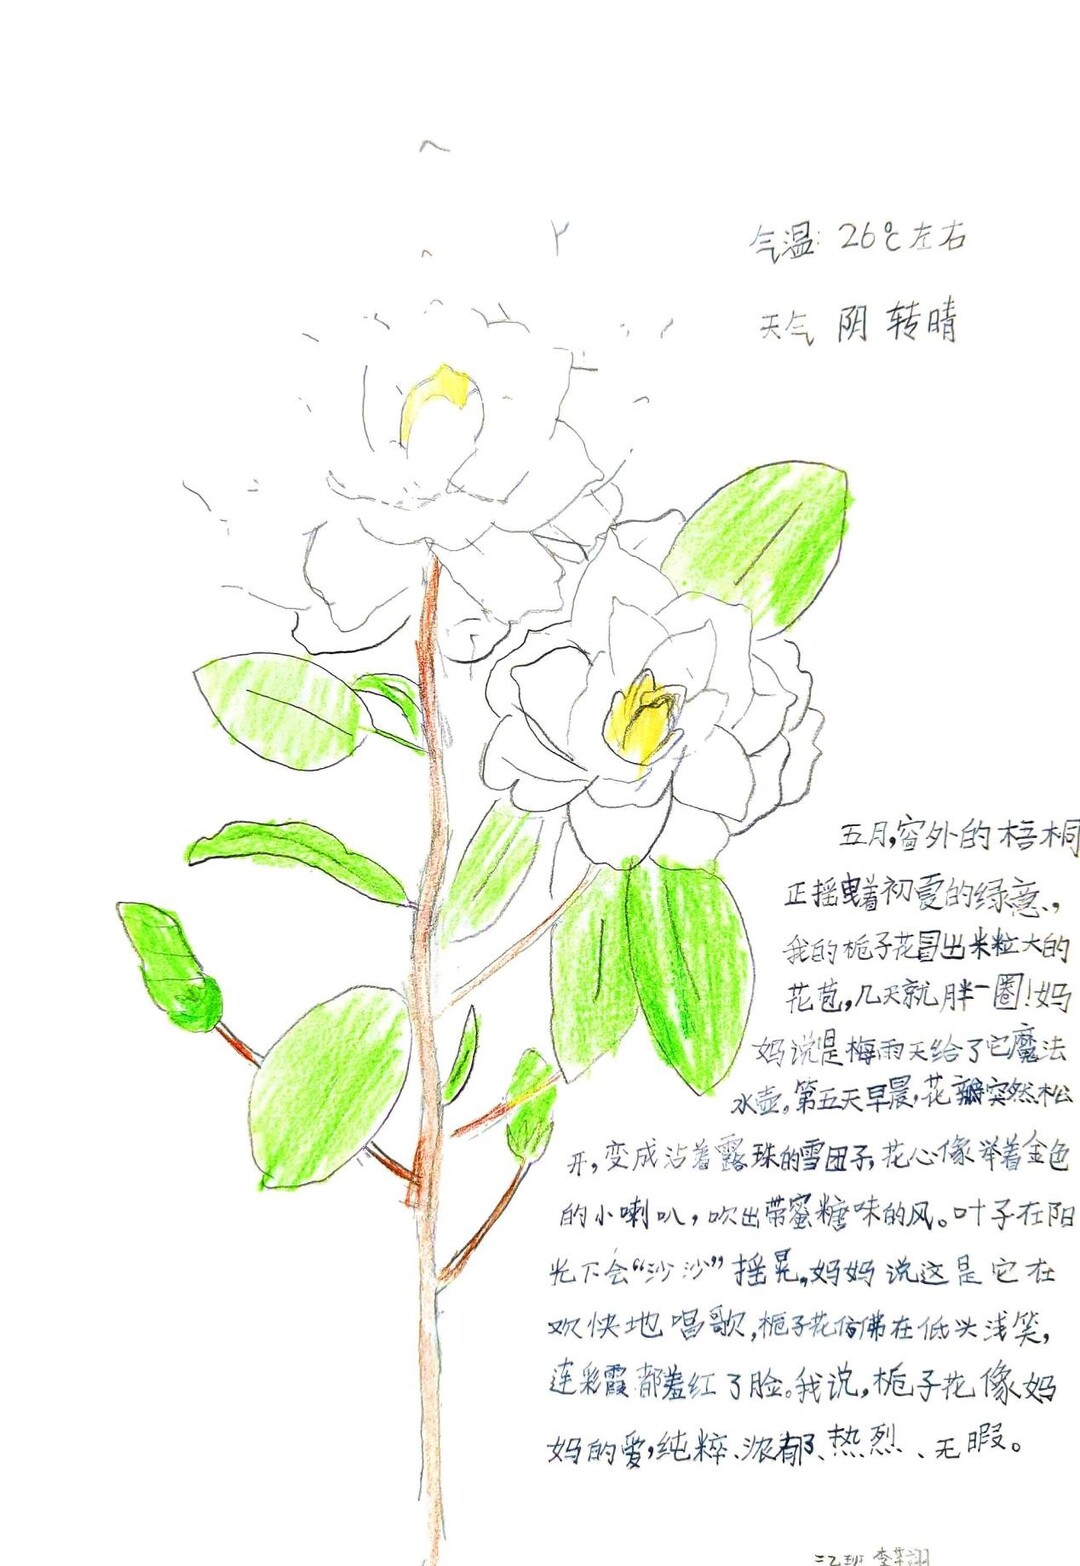 气温: 26℃左右
天气 阴转晴
五月,窗外的梧桐
正摇曳着初夏的绿意,
我的栀子花冒出米粒大的
花苞,几天就胖一圈!妈
妈说是梅雨天给了它魔法
水壶。第五天早晨,花瓣突然松
开,变成沾着露珠的雪团子,花心像举着金色
的小喇叭,吹出带蜜糖味的风。叶子在阳
光下会“沙沙”摇晃,妈妈说这是它在
欢快地唱歌,栀子花仿佛在低头浅笑,
连彩霞都羞红了脸。我说,栀子花像妈
妈的爱,纯粹、浓郁、热烈、无暇。